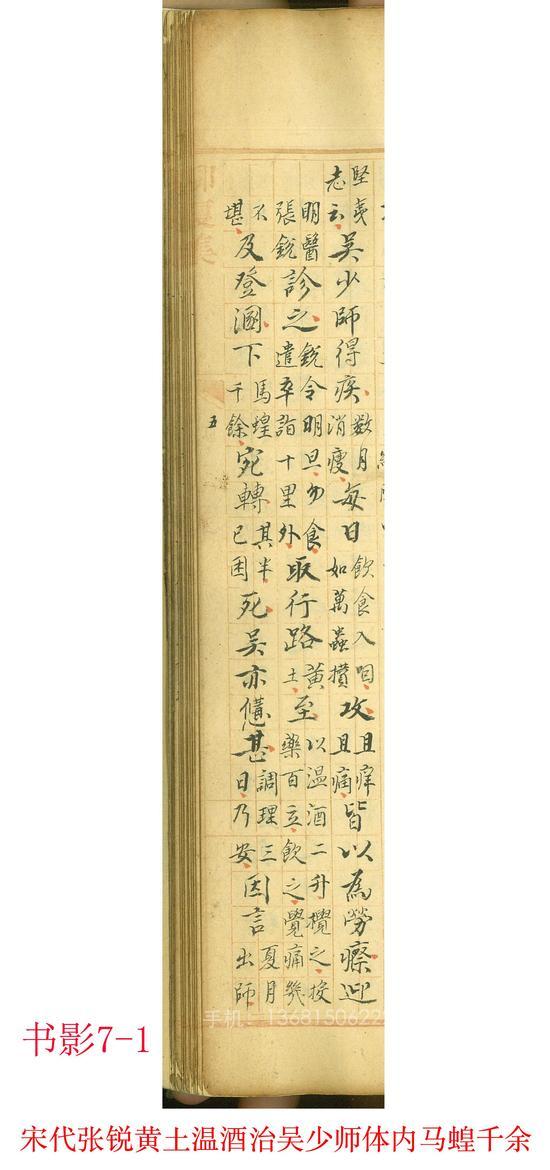 堅夷志云吳少師得疾數月消瘦每日飲食入咽如萬蟲攢攻且痒且痛皆以為勞瘵迎
明醫張銳診之銳令明旦勿食遣卒詣十里外取行路黃土至以温酒二升攪之投藥百立飲之覺痛幾
不堪及登溷下馬蝗千餘宛轉其半已困死吳亦憊甚調理三日乃安因言夏月出師
五
手机：1368150622
书影7-1
宋代张锐黄土温酒治吴少师体内马蝗千余